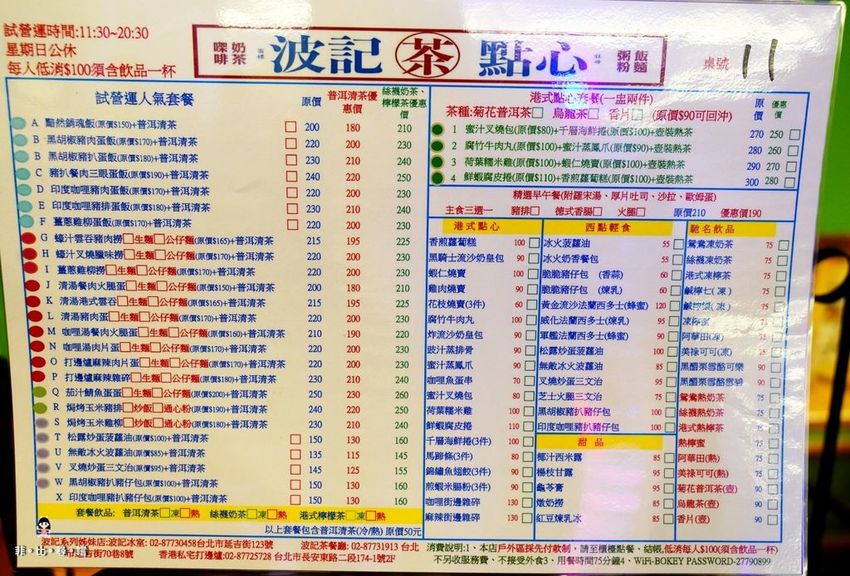 試營運時間:11:30~20:30
星期日公休
每人低消$100須含飲品一杯
奶茶 㗎啡
波記茶點心
粥飯粉麵
桌號 11
試營運人氣套餐 原價 普洱清茶優惠價 絲襪奶茶、檸檬茶優惠價
A 黯然銷魂飯(原價$150)+普洱清茶 200 180 210
B 黑胡椒豬肉蛋飯(原價$170)+普洱清茶 220 200 230
B 黑胡椒豬扒蛋飯(原價$180)+普洱清茶 230 210 240
C 豬扒餐肉三眼蛋飯(原價$170)+普洱清茶 220 200 230
D 印度咖哩豬肉蛋飯(原價$170)+普洱清茶 220 200 230
E 印度咖哩豬扒蛋飯(原價$180)+普洱清茶 230 210 240
F 薑蔥雞柳蛋飯(原價$170)+普洱清茶 220 200 230
G 蠔汁雲吞豬肉撈 生麵 公仔麵(原價$165)+普洱清茶 215 195 225
H 蠔汁叉燒臘味撈 生麵 公仔麵(原價$170)+普洱清茶 220 200 230
I 薑蔥雞柳撈 生麵 公仔麵(原價$170)+普洱清茶 220 200 230
J 清湯餐肉火腿蛋 生麵 公仔麵(原價$150)+普洱清茶 200 180 210
K 清湯港式雲吞 生麵 公仔麵(原價$165)+普洱清茶 215 195 225
L 清湯豬肉蛋 生麵 公仔麵(原價$170)+普洱清茶 220 200 230
M 咖哩湯餐肉火腿蛋 生麵 公仔麵(原價$160)+普洱清茶 210 190 220
N 咖哩湯豬肉蛋 生麵 公仔麵(原價$170)+普洱清茶 220 200 230
O 打邊爐麻辣肉片蛋 生麵 公仔麵(原價$170)+普洱清茶 220 200 230
P 打邊爐麻辣雜碎 生麵 公仔麵(原價$180)+普洱清茶 230 210 240
Q 茄汁鯖魚蛋 生麵 公仔麵(原價$200)+普洱清茶 250 230 260
R 焗烤玉米豬排 炒飯 通心粉(原價$190)+普洱清茶 240 220 250
S 焗烤玉米雞柳 炒飯 通心粉(原價$180)+普洱清茶 230 210 240
T 松露炒蛋菠蘿油(原價$100)+普洱清茶 150 130 160
U 無敵冰火菠蘿油(原價$85)+普洱清茶 135 115 145
V 叉燒炒蛋三文治(原價$95)+普洱清茶 145 125 155
W 黑胡椒豬扒豬仔包(原價$100)+普洱清茶 150 130 160
X 印度咖哩豬扒豬仔包(原價$100)+普洱清茶 150 130 160
套餐飲品: 普洱清茶 凍 熱 絲襪奶茶 凍 熱 港式檸檬茶 凍 熱
以上套餐包含普洱清茶(冷/熱) 原價50元
港式點心套餐(一盅兩件) 原價 優惠價
茶種:菊花普洱茶 烏龍茶 香片 (原價$90可回沖)
1 蜜汁叉燒包(原價$80)+千層海鮮捲(原價$100)+壺裝熱茶 270 250
2 腐竹牛肉丸(原價$100)+蜜汁蒸鳳爪(原價$90)+壺裝熱茶 280 260
3 荷葉糯米雞(原價$100)+蝦仁燒賣(原價$100)+壺裝熱茶 290 270
4 鮮蝦腐皮捲(原價$110)+香煎蘿蔔糕(原價$100)+壺裝熱茶 300 280
精選早午餐(附羅宋湯、厚片吐司、沙拉、歐姆蛋)
主食三選一 豬排 德式香腸 火腿 原價210 優惠價190
港式點心
香煎蘿蔔糕 100
黑騎士流沙奶皇包 90
蝦仁燒賣 100
雞肉燒賣 80
花枝燒賣(3件) 60
腐竹牛肉丸 100
炸流沙奶皇包 90
豉汁蒸排骨 90
蜜汁蒸鳳爪 90
咖哩魚蛋串 50
蜜汁叉燒包 80
荷葉糯米雞 100
鮮蝦腐皮捲 110
千層海鮮捲(3件) 100
馬蹄條(3件) 80
錦鏽魚翅餃(3件) 90
煎蝦米腸粉(3件) 90
咖哩街邊雜碎 130
麻辣街邊雜碎 130
西點輕食
冰火菠蘿油 55
冰火奶香餐包 55
脆脆豬仔包 (香蒜) 60
脆脆豬仔包 (煉乳) 60
黃金流沙法蘭西多士(蜂蜜) 120
威化法蘭西多士(煉乳) 95
軍艦法蘭西多士(蜂蜜) 80
松露炒蛋菠蘿油 100
無敵冰火菠蘿油 85
叉燒炒蛋三文治 95
芝士火腿三文治 85
黑胡椒豬扒豬仔包 100
印度咖哩豬扒豬仔包 100
甜品
椰汁西米露 85
楊枝甘露 95
龜苓膏 95
燉奶撈 85
紅豆煉乳冰 85
馳名飲品
鴛鴦凍奶茶 75
絲襪凍奶茶 75
港式凍檸茶 75
鹹檸七(凍) 75
凍檸蜜 75
阿華田(凍) 75
美祿可可(凍) 75
黑醋栗雪酪可樂 90
黑醋栗雪酪雪碧 90
鴛鴦熱奶茶 75
絲襪熱奶茶 75
港式熱檸茶 75
熱檸蜜 75
阿華田(熱) 75
美祿可可(熱) 75
菊花普洱茶(壺) 90
烏龍茶(壺) 90
香片(壺) 90
波記系列姊妹店:波記冰室: 02-87730458台北市延吉街123號 波記茶餐廳: 02-87731913 台北
延吉街70巷8號 香港私宅打邊爐:02-87725728 台北市長安東路二段174-1號2F
消費說明:1、本店戶外區採先付款制, 請至櫃檯點餐、結帳,低消每人$100(須含飲品一杯)
不另收服務費、不接受外食3、用餐時間75分鐘4、WiFi-BOKEY PASSWORD-27790899
非‧比‧尋‧嚐